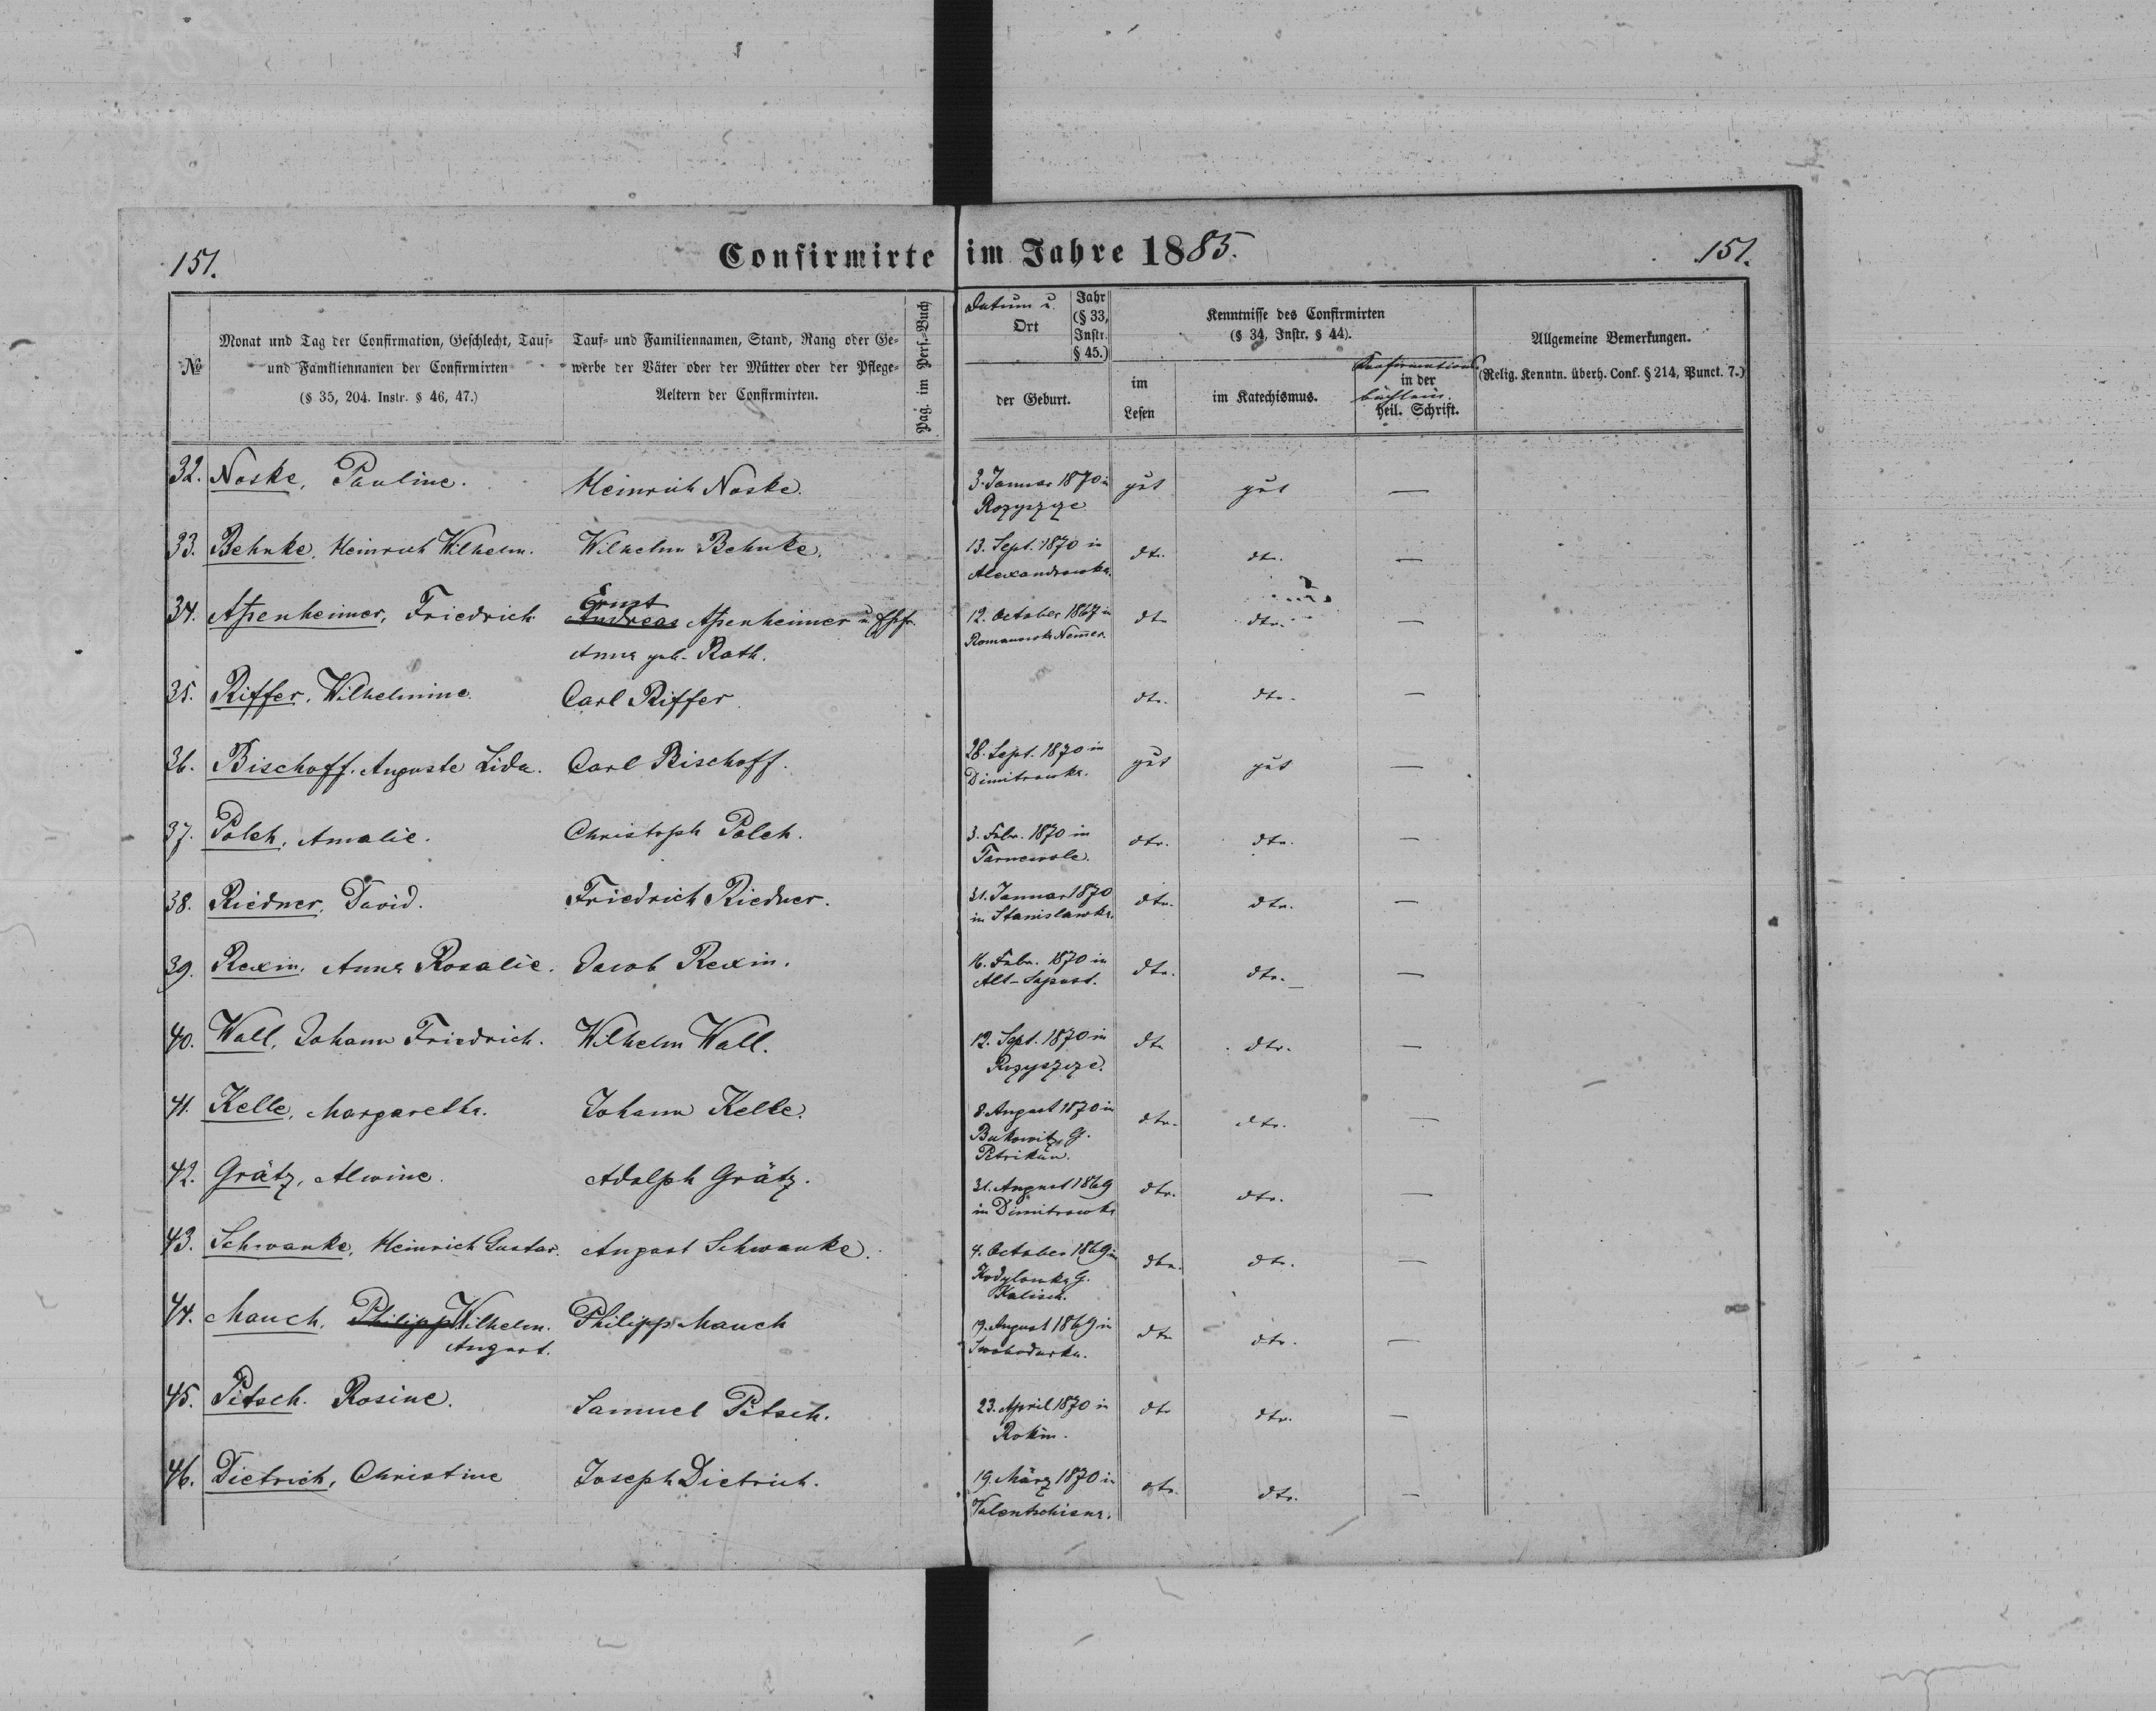 151.
Confirmirte im Jahre 1885.
151.
№
Monat und Tag der Confirmation, Geschlecht, Tauf-
und Familiennamen der Confirmirten
(§ 35, 204. Instr. § 46, 47.)
Tauf- und Familiennamen, Stand, Rang oder Ge-
werbe der Väter oder der Mütter oder der Pflege-
Aeltern der Confirmirten.
Pag. im Pers.-Buch
Datum u.
Ort
Jahr
(§ 33,
Instr.
§ 45.)
der Geburt.
Kenntnisse des Confirmirten
(§ 34, Instr. § 44).
im
Lesen
im Katechismus.
Confirmations
in der
büchlein.
heil. Schrift.
Allgemeine Bemerkungen.
(Relig. Kenntn. überh. Conf. § 214, Punct. 7.)
32. Noske, Pauline. Heinrich Noske. 3. Januar 1870 in gut gut —
Rozyszcze
33. Behnke, Heinrich Wilhelm. Wilhelm Behnke. 13. Sept. 1870 in dto. dto. —
Alexandrowka.
Ernst
34. Assenheimer, Friedrich Andreas Assenheimer u. 12. October 1867 in dto dto. —
Anna geb. Rath. Romanowka
35. Riffer, Wilhelmine. Carl Riffer. dto. dto. —
36. Bischoff, Auguste Lida. Carl Bischoff. 28. Sept. 1870 in gut gut —
Dimitrowka.
37. Polch, Amalie. Christoph Polch. 3. Febr. 1870 in dto. dto. —
Tarnowola.
38. Riedner, David. Friedrich Riedner. 31. Januar 1870 dto. dto. —
in Stanislawka.
39. Rexin, Anna Rosalie. Jacob Rexin. 16. Febr. 1870 in dto. dto. —
Alt-Sapust.
40. Wall, Johann Friedrich. Wilhelm Wall. 12. Sept. 1870 in dto dto. —
Rozyszcze.
41. Kelle, Margaretha. Johann Kelle. 8 August 1870 in dto. dto. —
Bukowitz, G.
Petrikau.
42. Grätz, Alwine. Adolph Grätz. 31. August 1869 dto. dto. —
in Dimitrowka
43. Schwanke, Heinrich Gustav. August Schwanke. 4. October 1869 in dto. dto. —
G.
Kalisch.
44. Mauch, Philipp Wilhelm. Philipp Mauch 19. August 1869 in dto dto. —
August. Swobodarka.
45. Petsch. Rosine. Samuel Petsch. 23. April 1870 in dto dto. —
Rokin.
46. Dietrich, Christine Joseph Dietrich. 19. März 1870 in dto. dto. —
Valentschisna.